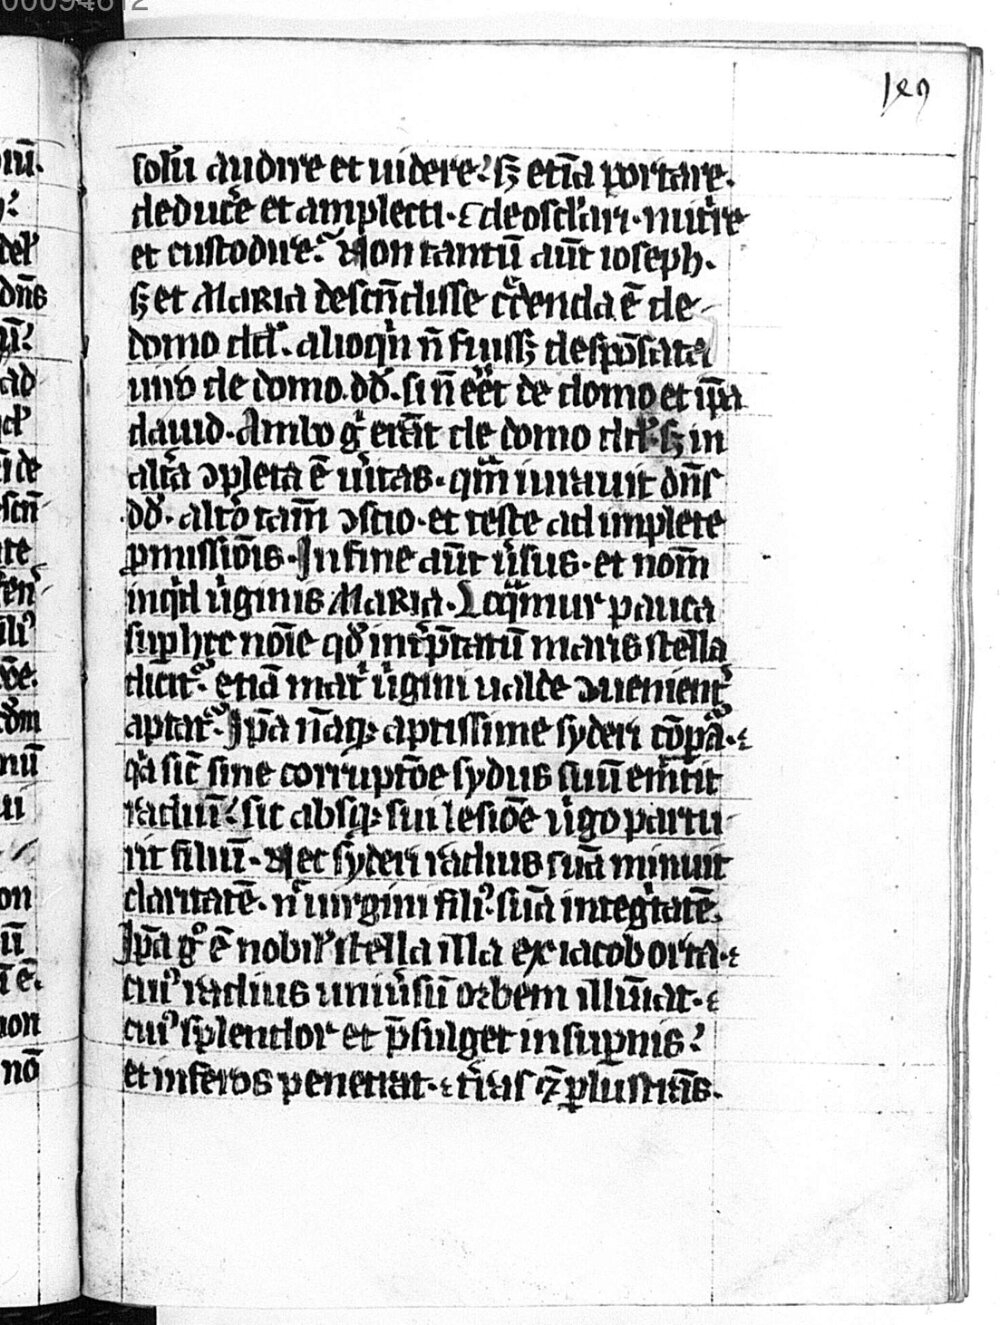 00094612
189
solū audire et uidere? sꝫ etiā portare.
deducͤe et amplecti· ⁊ deosclari· nutͥre
et custodire. Non tantū aūt ioseph·
sꝫ et Maria descn̄disse cͤdenda ē de
domo dd̾· alioqͥn n̄ fuissꝫ despōsata
uiro de domo dd̾· si n̄ eēt de domo et ip̄a
dauid· Ambo gͥ erāt de domo dd̾· sꝫ in
altͣa ꝯpleta ē uͥitas· qm̄ iurauit dn̄s
dd̾· altͦo tam̄ ꝯscio· et teste adimplete
ꝓmissiōis· In fine aūt uͥsus· et nom̄
inqͥd uͥginis Maria· Loqͣmur pauca
suꝑ hoc noīe qd̾ int̾p̄tatū maris stella
dicit᷑· ⁊ etiā mat̾ uͥgini ualde ꝯuenient̾
aptat᷑· Ip̄a nāqꝫ aptissime syderi cōpat᷑·
qͥa sic̄ sine corruptōe sydus suū emittit
radiū? sic absqꝫ sui lesiōe uͥgo partu
rit filiū· Nec syderi radius suā minuit
claritatē· nͨ uirgini filiꝰ suā integͥtatē·
Ip̄a gͦ ē nobilͥ stella illa ex iacob orta·
cuiꝰ radius uniuͥsū orbem illūiat·
cuiꝰ splendor et p̄fulget in suꝑnis?
et inferos penetrat· t̾ras qꝫ ꝑlustrās·